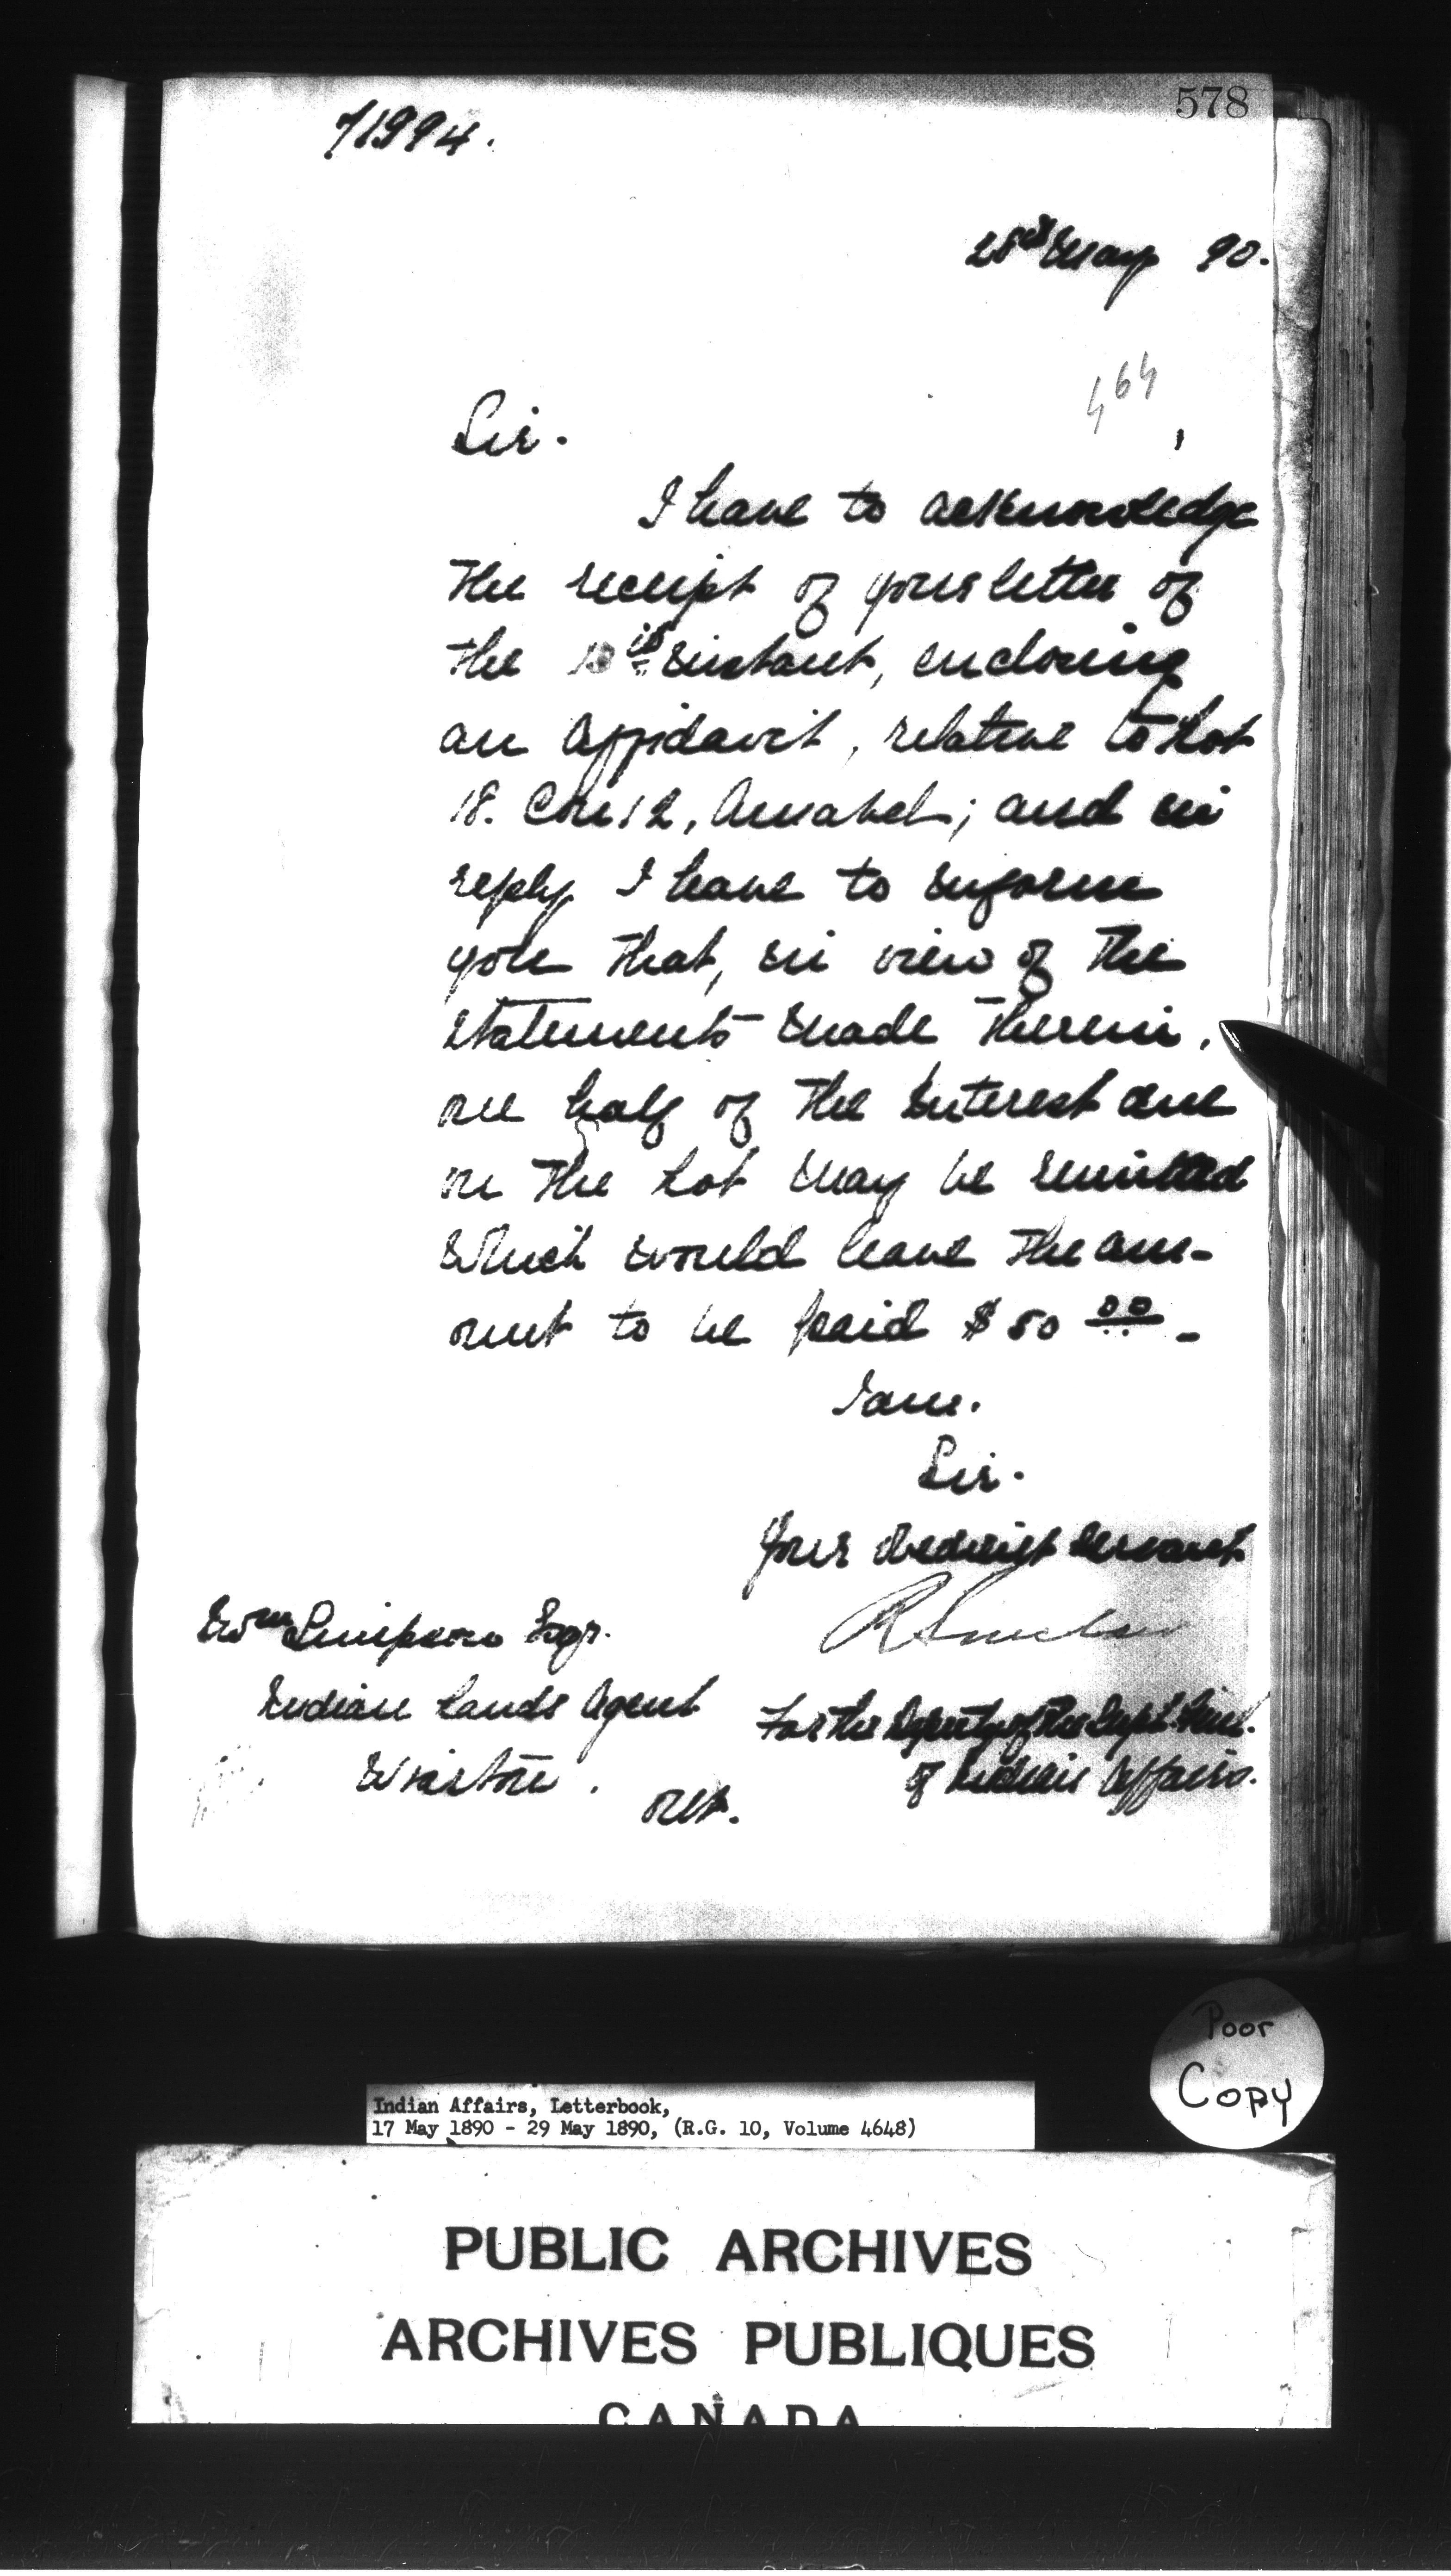 578
71994.
28th May 90.
464
Sir.
I have to acknowledge
the receipt of your letter of
the 13th instant, enclosing
an affidavit, relative to Lot
18. Con 12, Amabel; and in
reply I have to inform
you that, in view of the
statements made therein,
one half of the interest due
on the Lot may be remitted
which would leave the am-
ount to be paid $50 00 -
I am.
Sir.
Your obedient servant
R Sinclair
Wm Simpson Esqr.
Indian Lands Agent
Wiarton.
Ont.
For the Deputy of the Supt. Genl.
of Indian Affairs.
Poor
Copy
Indian Affairs, Letterbook,
17 May 1890 - 29 May 1890, (R.G. 10, Volume 4648)
PUBLIC ARCHIVES
ARCHIVES PUBLIQUES
CANADA